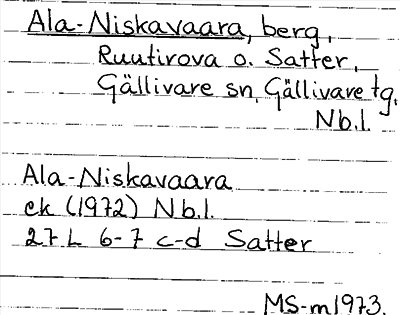 Ala-Niskavaara, berg,
Ruutirova o. Satter,
Gällivare sn, Gällivare tg,
Nb.l.
Ala-Niskavaara
ek (1972) Nb.l.
27 L 6-7 c-d Satter
MS-m1973.